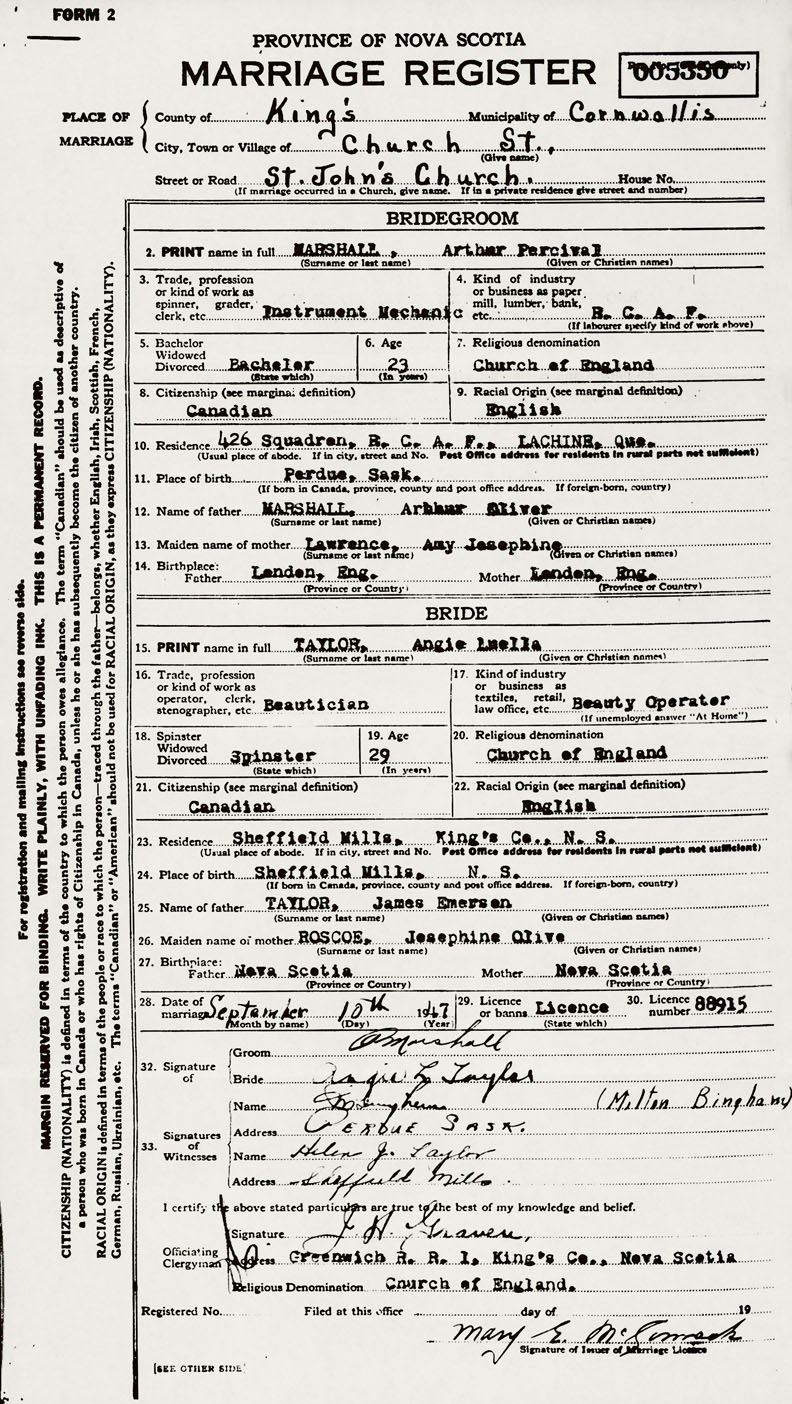 FORM 2
PROVINCE OF NOVA SCOTIA
MARRIAGE REGISTER
005350
PLACE OF MARRIAGE
County of King's Municipality of Cornwallis
City, Town or Village of Church St.,
(Give name)
Street or Road St. John's Church. House No.
(If marriage occurred in a Church, give name. If in a private residence give street and number)
BRIDEGROOM
2. PRINT name in full MARSHALL, Arthur Percival
(Surname or last name) (Given or Christian names)
3. Trade, profession or kind of work as spinner, grader, clerk, etc. Instrument Mechanic
4. Kind of industry or business as paper mill, lumber, bank, etc. R. C. A. F.
(If labourer specify kind of work above)
5. Bachelor Widowed Divorced Bachelor
(State which)
6. Age 23
(In years)
7. Religious denomination
Church of England
8. Citizenship (see marginal definition)
Canadian
9. Racial Origin (see marginal definition)
English
10. Residence 426 Squadron, R. C. A. F., LACHINE, Que.
(Usual place of abode. If in city, street and No. Post Office address for residents in rural parts not sufficient)
11. Place of birth Perdue, Sask.
(If born in Canada, province, county and post office address. If foreign-born, country)
12. Name of father MARSHALL, Arthur Oliver
(Surname or last name) (Given or Christian names)
13. Maiden name of mother Lawrence, Amy Josephine
(Surname or last name) (Given or Christian names)
14. Birthplace:
Father London, Eng. Mother London, Eng.
(Province or Country) (Province or Country)
BRIDE
15. PRINT name in full TAYLOR, Angie Luella
(Surname or last name) (Given or Christian names)
16. Trade, profession or kind of work as operator, clerk, stenographer, etc. Beautician
17. Kind of industry or business as textiles, retail, law office, etc. Beauty Operator
(If unemployed answer "At Home")
18. Spinster Widowed Divorced Spinster
(State which)
19. Age
29
(In years)
20. Religious denomination
Church of England
21. Citizenship (see marginal definition)
Canadian
22. Racial Origin (see marginal definition)
English
23. Residence Sheffield Mills, King's Co., N. S.
(Usual place of abode. If in city, street and No. Post Office address for residents in rural parts not sufficient)
24. Place of birth Sheffield Mills, N. S.
(If born in Canada, province, county and post office address. If foreign-born, country)
25. Name of father TAYLOR, James Emerson
(Surname or last name) (Given or Christian names)
26. Maiden name of mother ROSCOE, Josephine Olive
(Surname or last name) (Given or Christian names)
27. Birthplace:
Father Nova Scotia Mother Nova Scotia
(Province or Country) (Province or Country)
28. Date of marriage September 10th 1947
(Month by name) (Day) (Year)
29. Licence or banns Licence
(State which)
30. Licence number 88915
32. Signature of
Groom A Marshall
Bride Angie L Taylor
33. Signatures of Witnesses
Name M Bingham (Milton Bingham)
Address PERDUE SASK.
Name Helen J. Taylor
Address Sheffield Mills.
I certify the above stated particulars are true to the best of my knowledge and belief.
Officiating Clergyman
Signature J. H. Graven,
Address Greenwich R. R. 1, King's Co., Nova Scotia
Religious Denomination Church of England.
Registered No. Filed at this office day of 19
Mary E. McCormack
Signature of Issuer of Marriage Licence
[SEE OTHER SIDE]
For registration and mailing instructions see reverse side.
MARGIN RESERVED FOR BINDING. WRITE PLAINLY, WITH UNFADING INK. THIS IS A PERMANENT RECORD.
CITIZENSHIP (NATIONALITY) is defined in terms of the country to which the person owes allegiance. The term "Canadian" should be used as descriptive of
a person who was born in Canada or who has rights of Citizenship in Canada, unless he or she has subsequently become the citizen of another country.
RACIAL ORIGIN is defined in terms of the people or race to which the person—traced through the father—belongs, whether English, Irish, Scottish, French,
German, Russian, Ukrainian, etc. The terms "Canadian" or "American" should not be used for RACIAL ORIGIN, as they express CITIZENSHIP (NATIONALITY).